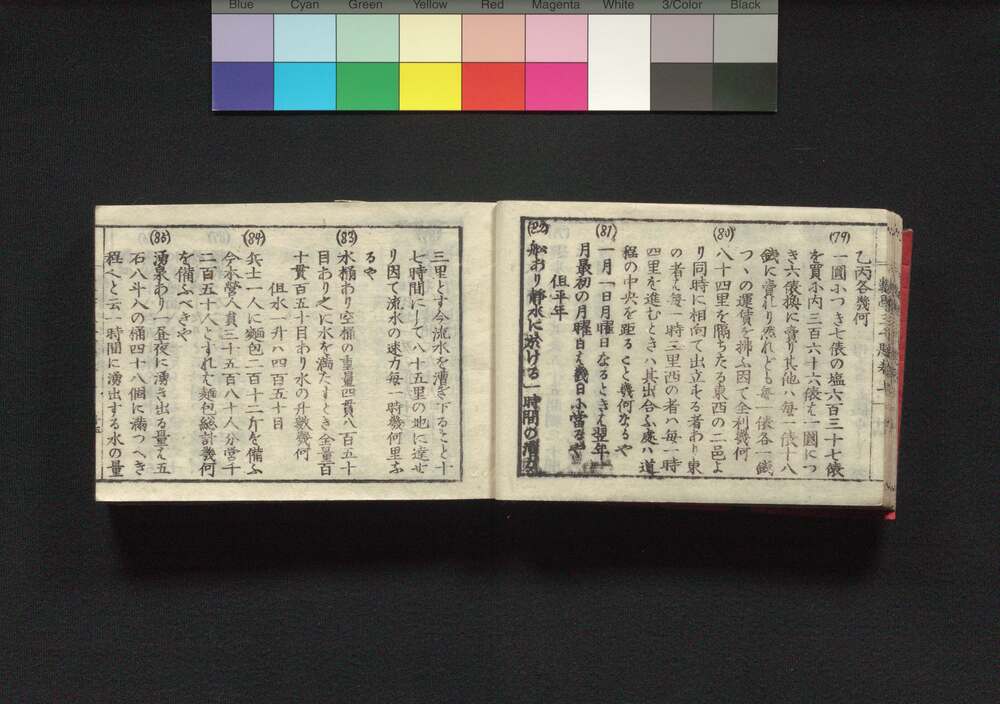 Blue Cyan Green Yellow Red Magenta White 3/Color Black
乙丙各幾何
(79)
一圓ふつき七俵の塩六百三十七俵
を買ふ内三百六十六俵を一圓につ
き六俵換に賣り其他ハ毎一俵十八
錢に賣れり然れども毎一俵各一錢
つゝの運賃を拂ふ因て全利幾何
(80)
八十四里を隔ちたる東西の二邑よ
り同時に相向て出立する者あり東
の者ハ毎一時三里西の者ハ毎一時
四里を進むときハ其出合ふ處ハ道
程の中央を距ること幾何なるや
(81)
一月一日月曜日なるときハ翌年一
月最初の月曜日ハ幾日に當るや
但平年
(82)
船あり靜水に於ける一時間の漕力
三里とす今流水を漕き下ること十
七時間にして八十五里の地に達せ
り因て流水の速力毎一時幾何里ふ
るや
(83)
水桶あり空桶の重量四貫八百五十
目ありこれに水を満たすとき全量百
十貫百五十目あり水の升數幾何
但水一升ハ四百五十目
(84)
兵士一人に麺包二百十二斤を備ふ
今本營人員三十五百八十人分營千
二百五十人とすれば麺包總計幾何
を備ふべきや
(85)
湧泉あり一昼夜に湧き出る量ハ五
石八斗入の桶四十八個に滿つへき
程なりと云一時間に湧出する水の量